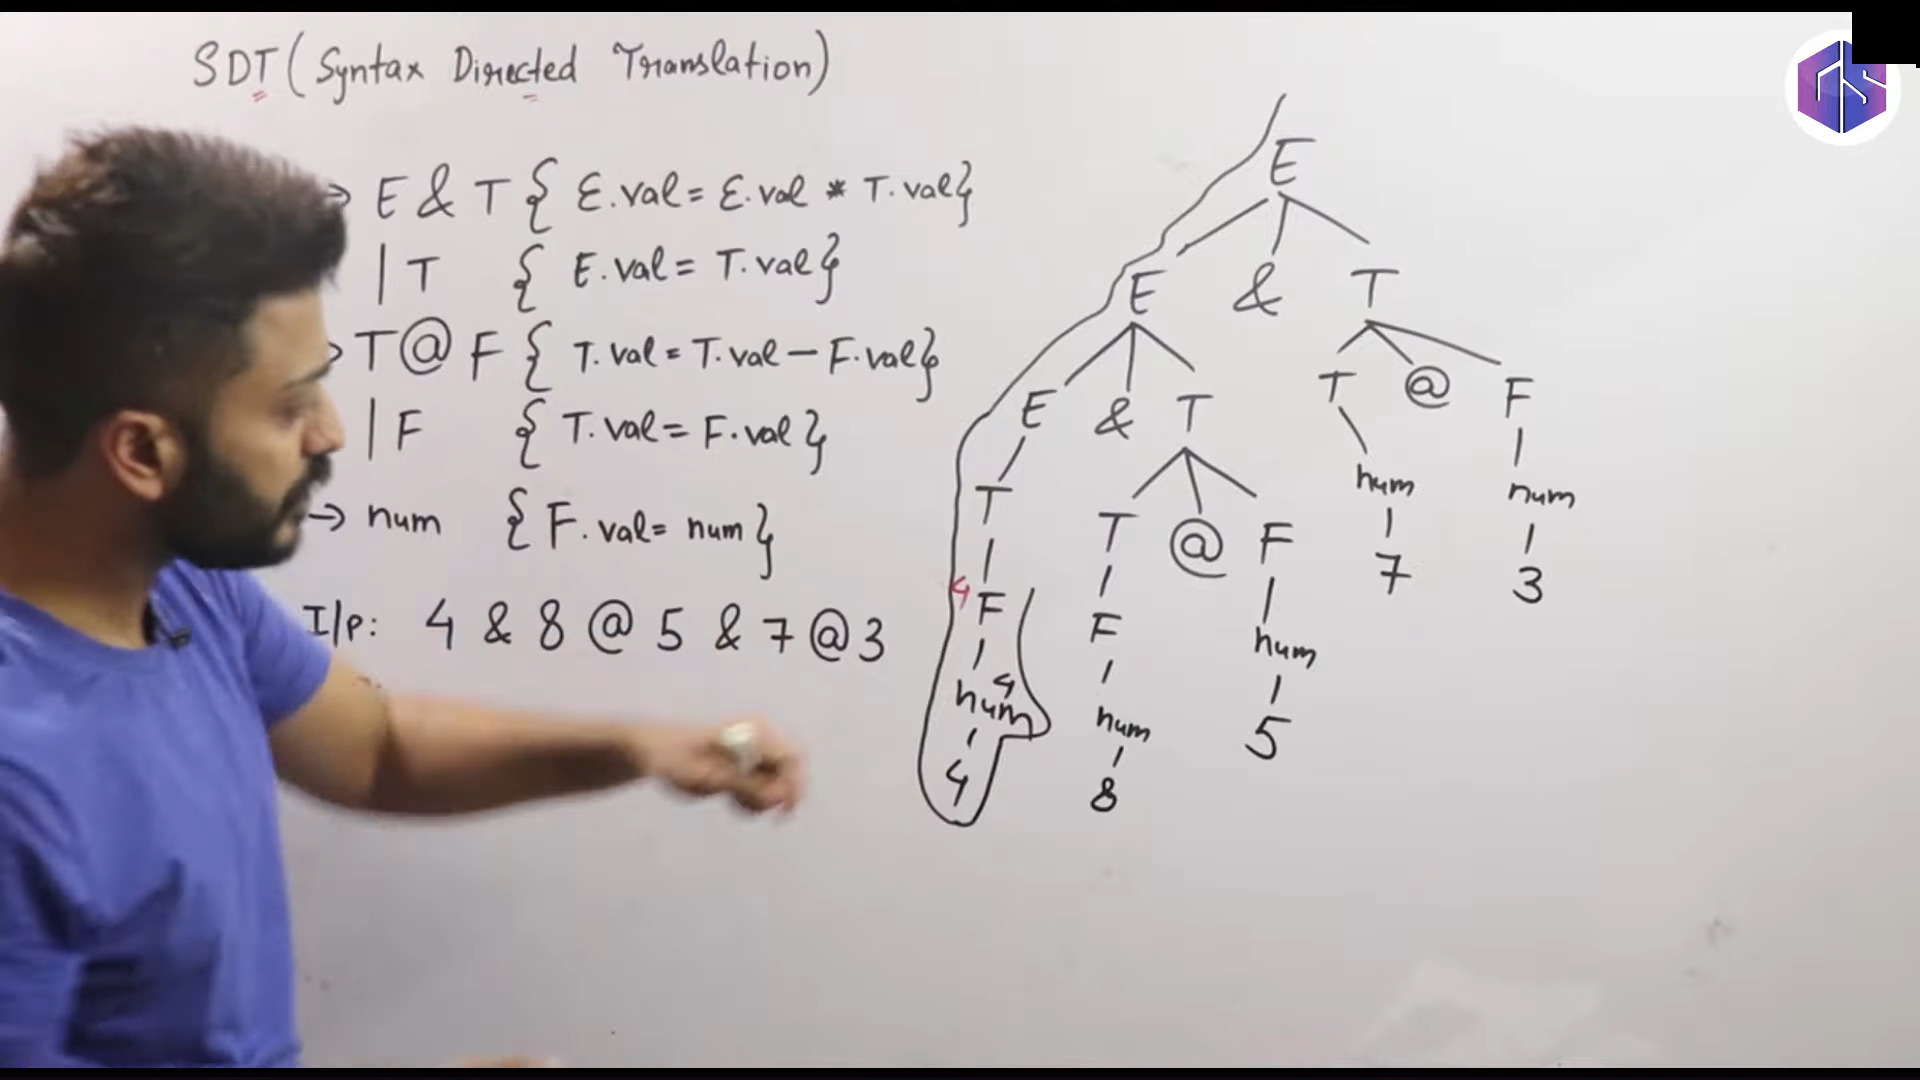 SDT (Syntax Directed Translation)
→ E & T { E.val = E.val * T.val}
| T { E.val = T.val}
→ T @ F { T.val = T.val - F.val}
| F { T.val = F.val}
→ num { F.val = num}
I/p: 4 & 8 @ 5 & 7 @ 3
E
E & T
E & T T @ F
T T @ F num num
4 F F num 7 3
num 4 num 5
4 8
GS